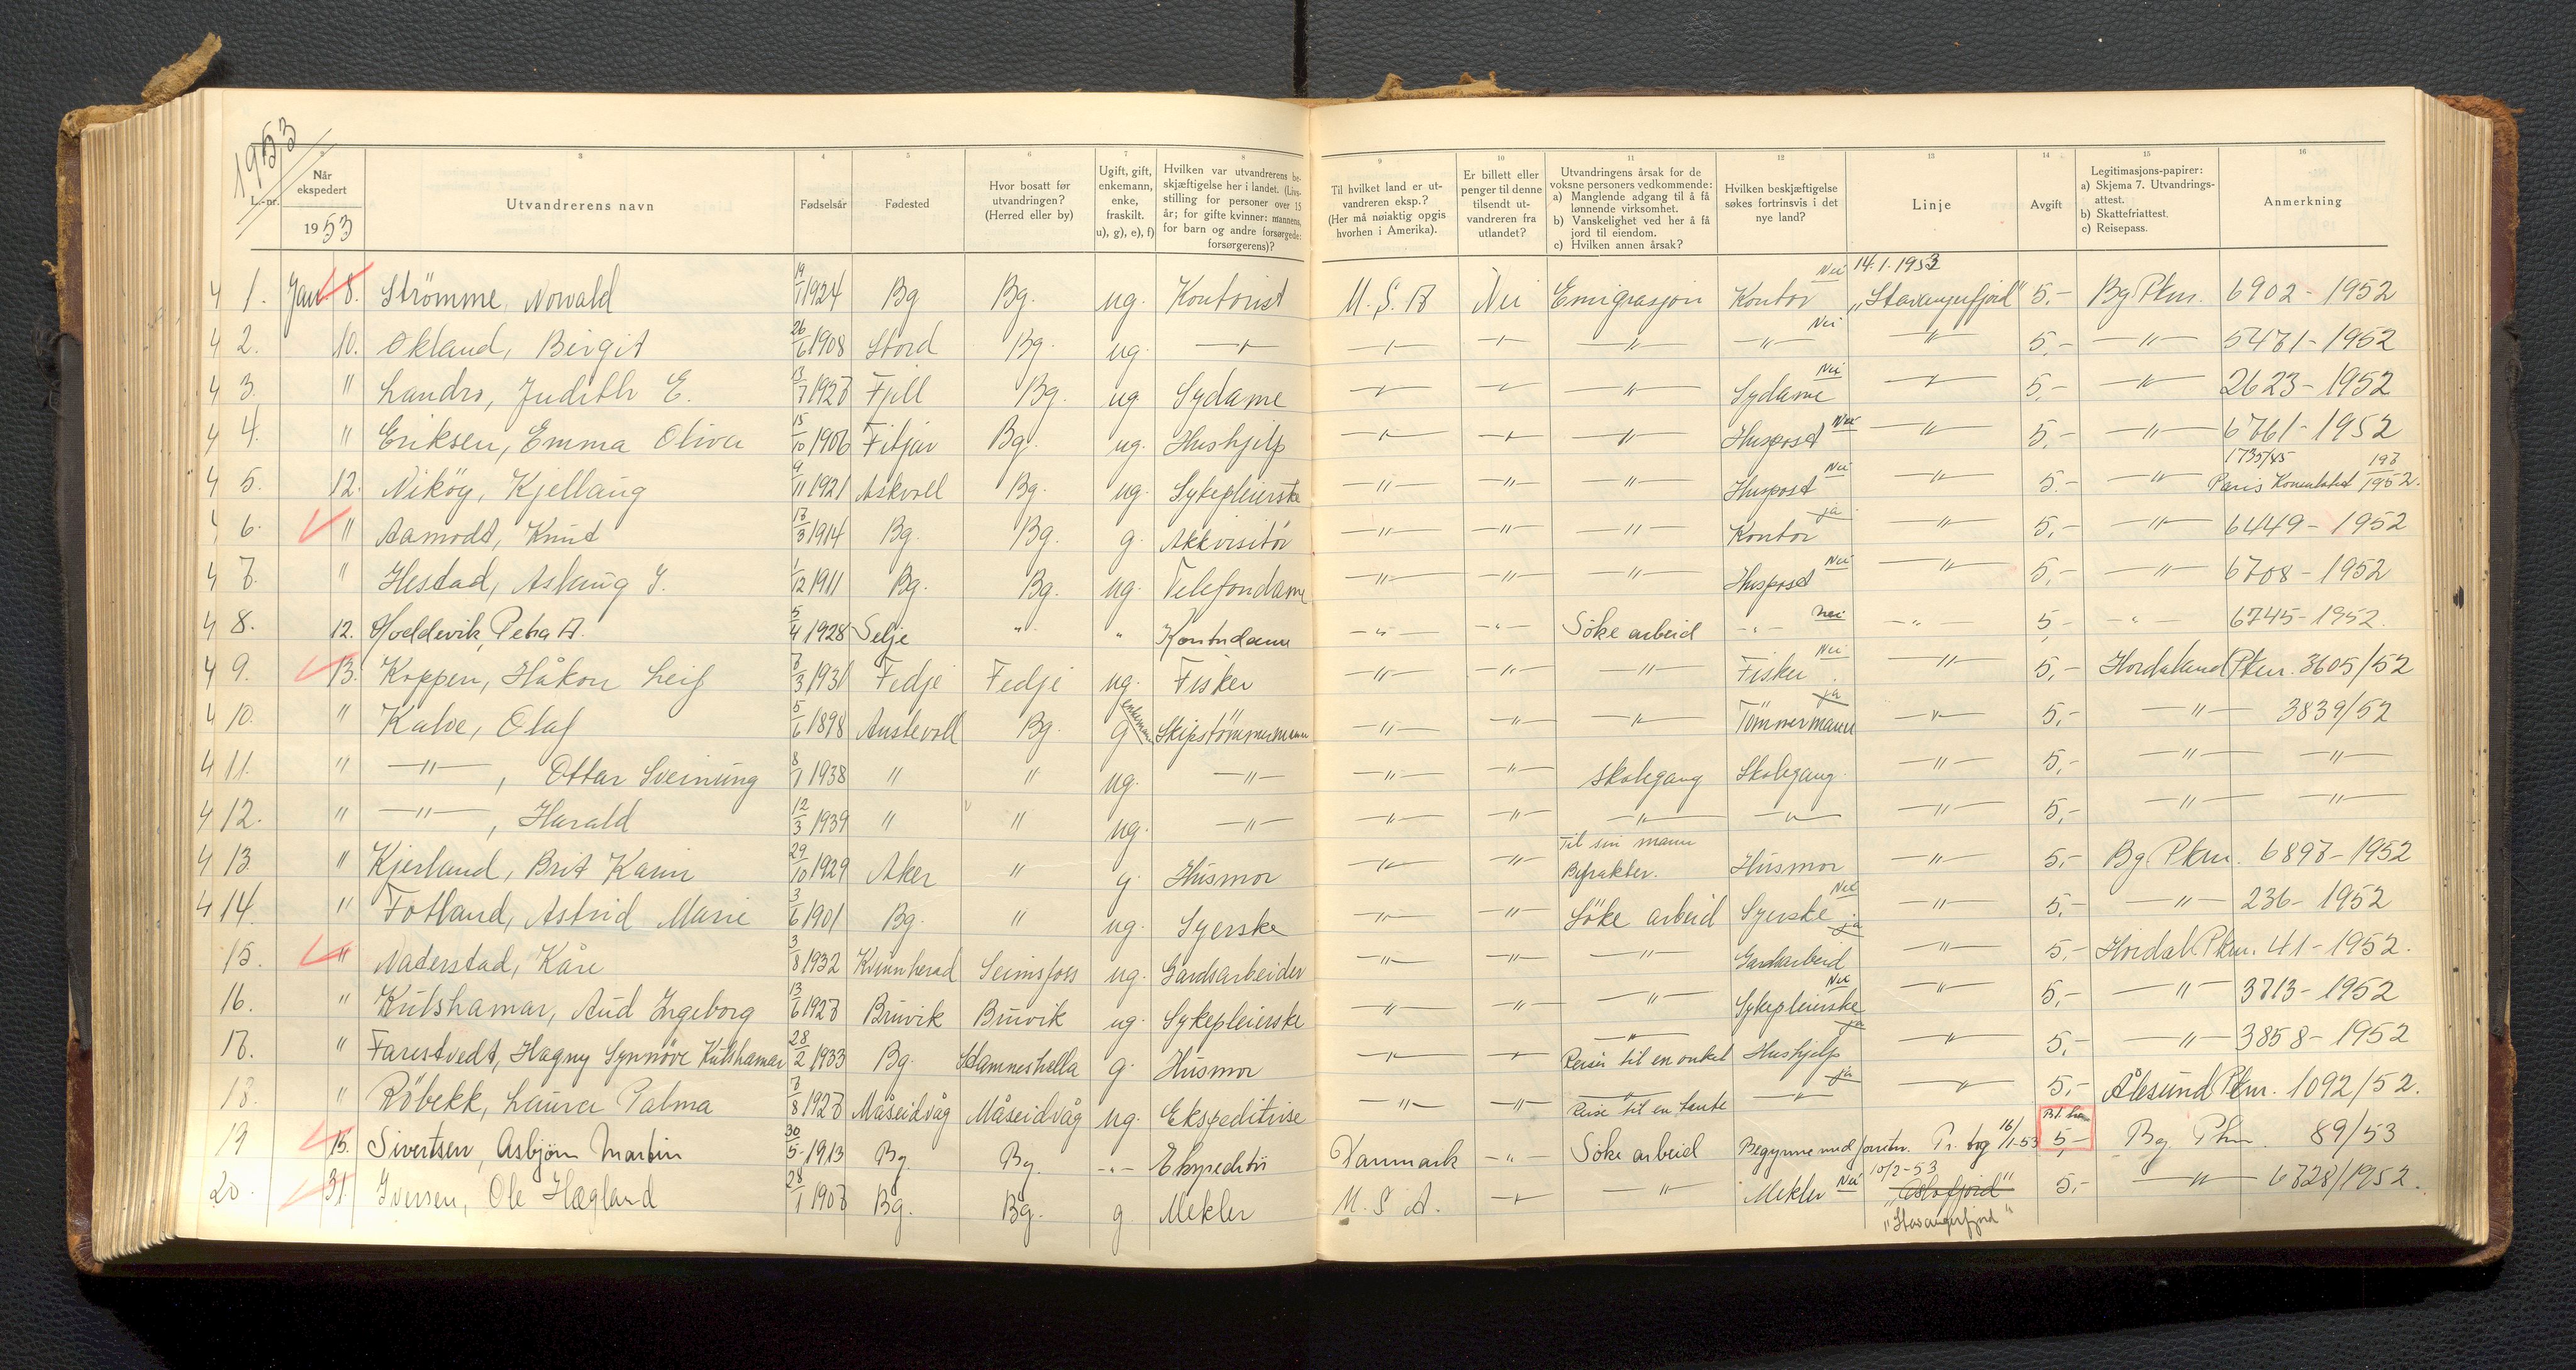 1953
L.-nr. Når ekspedert 1953 | 3 Utvandrerens navn | 4 Fødselsår | 5 Fødested | 6 Hvor bosatt før utvandringen? (Herred eller by) | 7 Ugift, gift, enkemann, enke, fraskilt. u), g), e), f) | 8 Hvilken var utvandrerens beskjæftigelse her i landet. (Livsstilling for personer over 15 år; for gifte kvinner: mannens, for barn og andre forsørgede: forsørgerens)? | 9 Til hvilket land er utvandreren eksp.? (Her må nøiaktig opgis hvorhen i Amerika). | 10 Er billett eller penger til denne tilsendt utvandreren fra utlandet? | 11 Utvandringens årsak for de voksne personers vedkommende: a) Manglende adgang til å få lønnende virksomhet. b) Vanskelighet ved her å få jord til eiendom. c) Hvilken annen årsak? | 12 Hvilken beskjæftigelse søkes fortrinsvis i det nye land? | 13 Linje | 14 Avgift | 15 Legitimasjons-papirer: a) Skjema 7. Utvandringsattest. b) Skattefriattest. c) Reisepass. | 16 Anmerkning
4 1. Jan. 8. Strömme, Norvald 19/1 1924 Bg Bg. ug. Kontorist U.S.A Nei Emigrasjon Kontor Nei 14.1.1953 "Stavangerfjord" 5,- Bg Pkm. 6902-1952
4 2. 10. Økland, Birgit 26/6 1908 Stord Bg. ug. -"- -"- -"- -"- -"- Nei -"- 5,- -"- 5471-1952
4 3. " Landro, Judith E. 13/7 1927 Fjell Bg. ug. Sydame -"- -"- -"- Sydame Nei -"- 5,- -"- 2623-1952
4 4. " Eriksen, Emma Oliva 15/10 1906 Fitjar Bg. ug. Hushjelp -"- -"- -"- Huspost Nei -"- 5,- -"- 6761-1952
4 5. 12. Nikøy, Kjellaug 9/11 1921 Askvoll Bg. ug. Sykepleierske -"- -"- -"- Huspost Nei -"- 5.- -"- 1735/45 Paris Konsulatet 197/1952.
4 6. " Aamodt, Knut 17/3 1914 Bg. Bg. g. Akkvisitør -"- -"- -"- Kontor ja -"- 5,- -"- 6449-1952
4 7. " Hestad, Aslaug J. 1/12 1911 Bg. Bg. ug. Telefondame -"- -"- -"- Huspost Nei -"- 5,- -"- 6708-1952
4 8. 12. Hoddevik, Petra A. 5/4 1928 Selje " " Kontordame -"- -"- Söke arbeid -"- nei -"- 5,- -"- 6745-1952.
4 9. 13. Koppen, Håkon Leif 7/3 1931 Fedje Fedje ug. Fisker -"- -"- -"- Fisker. Nei -"- 5,- Hordaland Pkm. 3605/52
4 10. " Kalve, Olaf 5/6 1898 Austevoll Bg. g enkemann Skipstømmermann -"- -"- -"- Tømmermann ja -"- 5,- -"- 3839/52
4 11. " -"-, Ottar Sveinung 8/1 1938 " " ug. -"- -"- -"- Skolegang Skolegang -"- 5,- -"- -"-
4 12. " -"-, Harald 12/3 1939 " " ug. -"- -"- -"- -"- -"- -"- 5,- -"- -"-
4 13. " Kjerland, Brit Karin 29/10 1929 Aker " g. Husmor -"- -"- Til sin mann Befrakter. Husmor -"- 5,- Bg. Pkm. 6897-1952
4 14. " Fotland, Astrid Marie 3/6 1901 Bg. " ug. Syerske -"- -"- Söke arbeid Syerske Nei -"- 5,- -"- 236-1952
15. " Naterstad, Kåre 3/8 1932 Kvinnherad Seimsfoss ug. Gardsarbeider -"- -"- -"- Gardsarbeid ja -"- 5,- Hordal. Pkm. 41-1952.
16. " Kulshamar, Aud Ingeborg 13/6 1927 Bruvik Bruvik ug. Sykepleierske -"- -"- -"- Sykepleierske Nei -"- 5,- -"- 3713-1952
17. " Farestvedt, Hagny Synnöve Kulshamar 28/2 1933 Bg. Stamneshella g. Husmor -"- -"- -"- Reiser til en onkel Hushjelp ja -"- 5,- -"- 3858-1952
18. " Röbekk, Laura Palma 7/8 1927 Måseidvåg Måseidvåg ug. Ekspeditrise -"- -"- -"- Reise til en tante -"- ja -"- 5,- Ålesund Pkm. 1092/52.
19 15. Sivertsen, Asbjørn Martin 30/5-1913 Bg Bg. -"- Ekspeditör Danmark -"- Söke arbeid Pr. tog 16/1-53 5,- Bg Pkm. 89/53
20. 31. Iversen, Ole Hægland 28/1 1907 Bg. Bg. g. Mekler U.S.A. -"- -"- Mekler Nei 10/2-53 "Oslofjord" "Stavangerfjord" 5,- -"- 6728/1952.